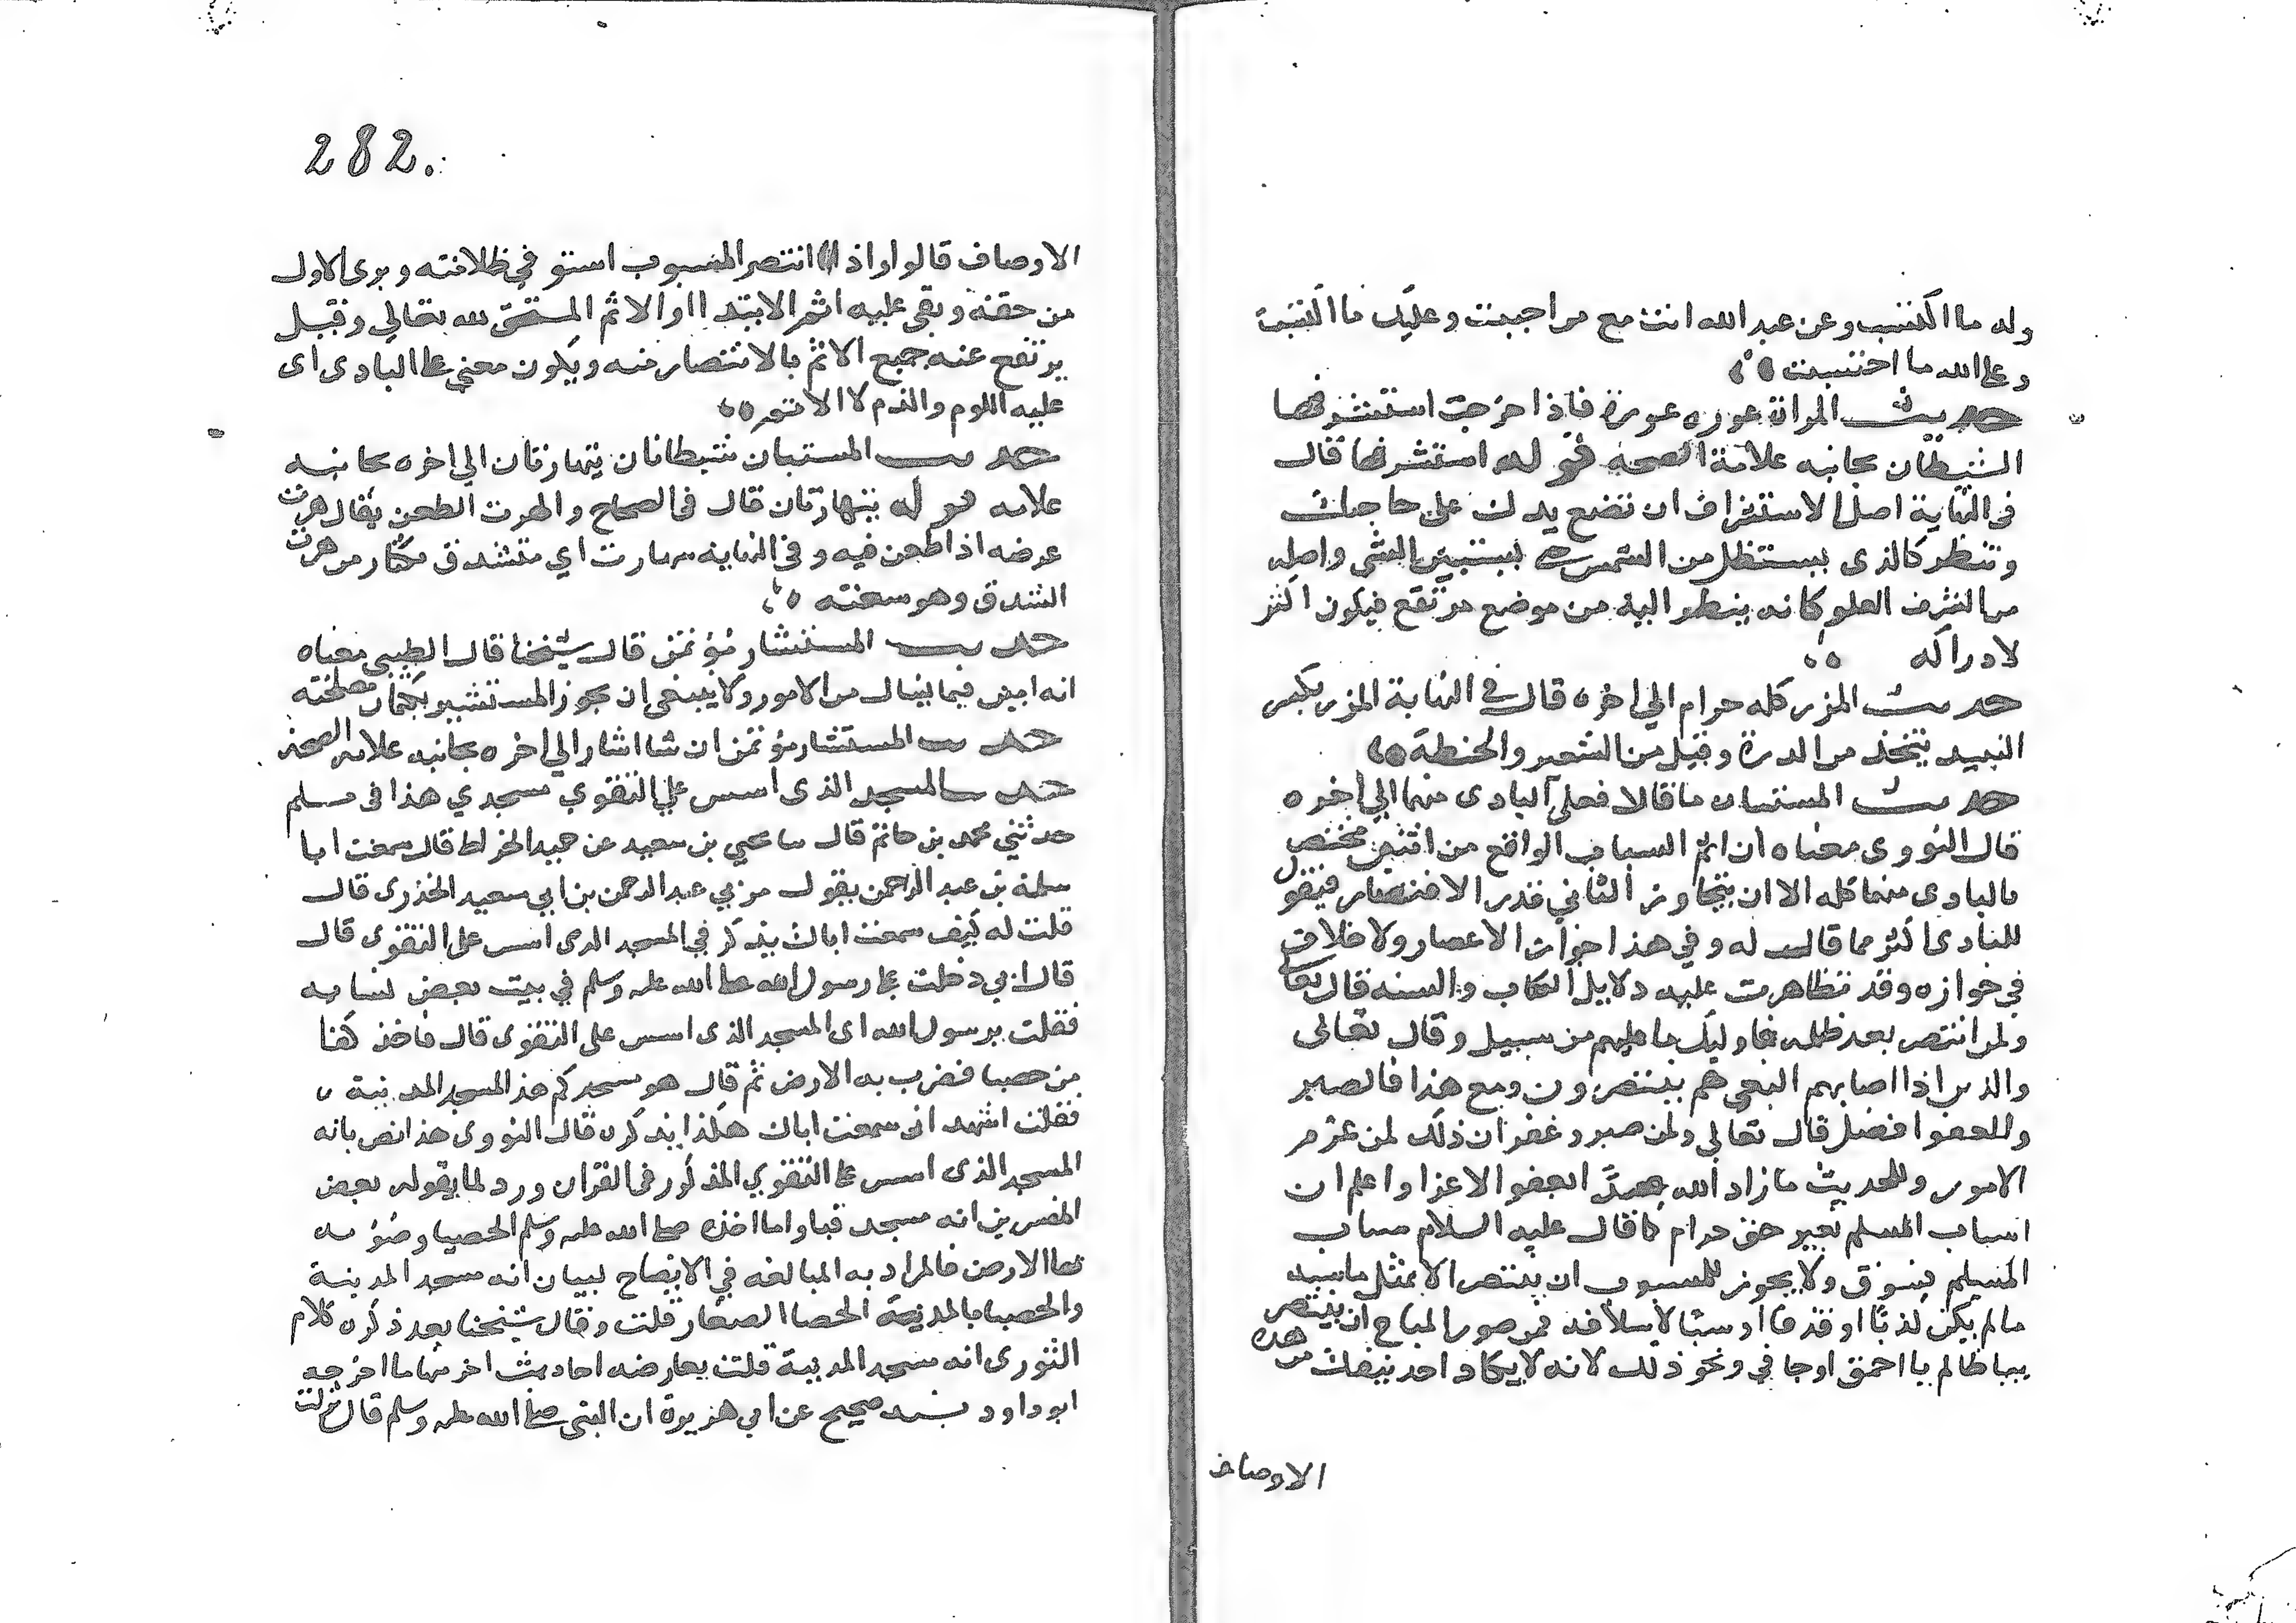 وله ما اكتسب وعن عبد الله انت مع من احببت وعليك ما اكتسبت
وعلى الله ما احتسبت
حديث المراة عوره عورة فاذا خرجت استشرفها
الشيطان بجانبه علامة الصحه قوله استشرفها قال
في النهاية اصل الاستشراف ان تضع يدك على حاجبك
وتنظر كالذى يستظل من الشمس حتى يستبين الشى واصله
من الشرف العلو كانه ينظر اليه من موضع مرتفع فيكون اكثر
لادراكه
حديث المزر كله حرام الي اخره قال في النهاية المزر بكسر
النبيد يتخذ من الدرة وقيل من الشعير والحنطة
حديث المستبان ما قالا فعلى البادى منهما الي اخره
قال النووى معناه ان اثم السباب الواقع من اثنين مختص
بالبادى منهما كله الا ان يتجاوز الثاني قدر الانتصار فيقول
للبادى اكثر مما قال له وفي هذا جواز الانتصار ولا خلاف
في جوازه وقد تظاهرت عليه دلايل الكتاب والسنه قال تعا
ولمن انتصر بعد ظلمه فاوليك ما عليهم من سبيل وقال تعالى
والذين اذا اصابهم البغي هم ينتصرون ومع هذا فالصبر
والعفو افضل قال تعالي ولمن صبر وغفر ان ذلك لمن عزم
الامور وللحديث ما زاد الله عبدا بعفو الا عزا واعلم ان
سباب المسلم بغير حق حرام كما قال عليه السلام سباب
المسلم فسوق ولا يجوز للمسبوب ان ينتصر الا بمثل ما سبه
ما لم يكن كذبا او قذفا او سبا لاسلافه فمن صور المباح ان ينتصر
بيا ظالم يا احمق او جافي ونحو ذلك لانه لا يكاد احد ينفك من هذه
الاوصاف
282.
الاوصاف قالوا واذا انتصر المسبوب استوفي ظلامته وبرى الاول
من حقه وبقى عليه اثم الابتدا او الاثم المستحق لله تعالي وقيل
يرتفع عنه جميع الاثم بالانتصار منه ويكون معني على البادى اى
عليه اللوم والذم لا الاثم
حديث المستبان شيطانان يتهارتان الي اخره بجانبه
علامه قوله يتهارتان قال في الصحاح والهرت الطعن يقال هرت
عرضه اذا طعن فيه وفي النهايه مهارت اي متشدق مكثار من هرت
الشدق وهو سعته
حديث المستشار مؤتمن قال شيخنا قال الطيبي معناه
انه امين فيما يسال من الامور ولا ينبغي ان يخون المستشير بكتمان مصلحته
حديث المستشار مؤتمن ان شا اشار الي اخره بجانبه علامه الصحة
حديث المسجد الذى اسس علي التقوي مسجدي هذا في مسلم
حدثني محمد بن حاتم قال ثنا يحيي بن سعيد عن حميد الخراط قال سمعت ابا
سلمة بن عبد الرحمن يقول مر بي عبد الرحمن بن ابي سعيد الخذرى قال
قلت له كيف سمعت اباك يذكر في المسجد الدى اسس على التقوى قال
قال ابي دخلت على رسول الله صلى الله عليه وسلم في بيت بعض نسايه
فقلت يرسول الله اى المسجد الذى اسس على التقوى قال فاخذ كفا
من حصبا فضرب به الارض ثم قال هو مسجدكم هذا لمسجد المدينة
فقلت اشهد انى سمعت اباك هكذا يذكره قال النووى هذا نص بانه
المسجد الذى اسس على التقوي المذكور في القران ورد لما يقوله بعض
المفسرين انه مسجد قبا واما اخذه صلى الله عليه وسلم الحصبا وضربه
بها الارض فالمراد به المبالغه في الايضاح لبيان انه مسجد المدينة
والحصبا بالمد يعنى الحصا الصغار قلت وقال شيخنا بعد ذكره كلام
النووى انه مسجد المدينة قلت يعارضه احاديث اخر منها ما اخرجه
ابو داود بسند صحيح عن ابي هريرة ان النبى صلى الله عليه وسلم قال نزلت